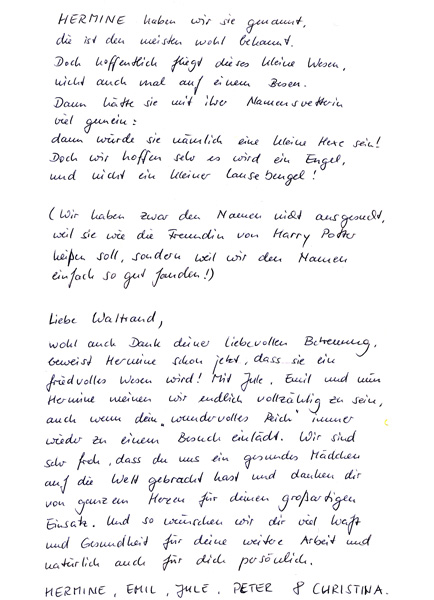 HERMINE haben wir sie genannt,
die ist den meisten wohl bekannt.
Doch hoffentlich fliegt dieses kleine Wesen,
nicht auch mal auf einem Besen.
Dann hätte sie mit ihrer Namensvetterin
viel gemein:
dann würde sie nämlich eine kleine Hexe sein!
Doch wir hoffen sehr es wird ein Engel,
und nicht ein kleiner Lausebengel!
(Wir haben zwar den Namen nicht ausgesucht,
weil sie wie die Freundin von Harry Potter
heißen soll, sondern weil wir den Namen
einfach so gut fanden!)
Liebe Waltraud,
wohl auch Dank deiner liebevollen Betreuung,
beweist Hermine schon jetzt, dass sie ein
friedvolles Wesen wird! Mit Jule, Emil und nun
Hermine meinen wir endlich vollzählig zu sein,
auch wenn dein „wundervolles Reich" immer
wieder zu einem Besuch einlädt. Wir sind
sehr froh, dass du uns ein gesundes Mädchen
auf die Welt gebracht hast und danken dir
von ganzem Herzen für deinen großartigen
Einsatz. Und so wünschen wir dir viel Kraft
und Gesundheit für deine weitere Arbeit und
natürlich auch für dich persönlich.
HERMINE, EMIL, JULE, PETER & CHRISTINA.